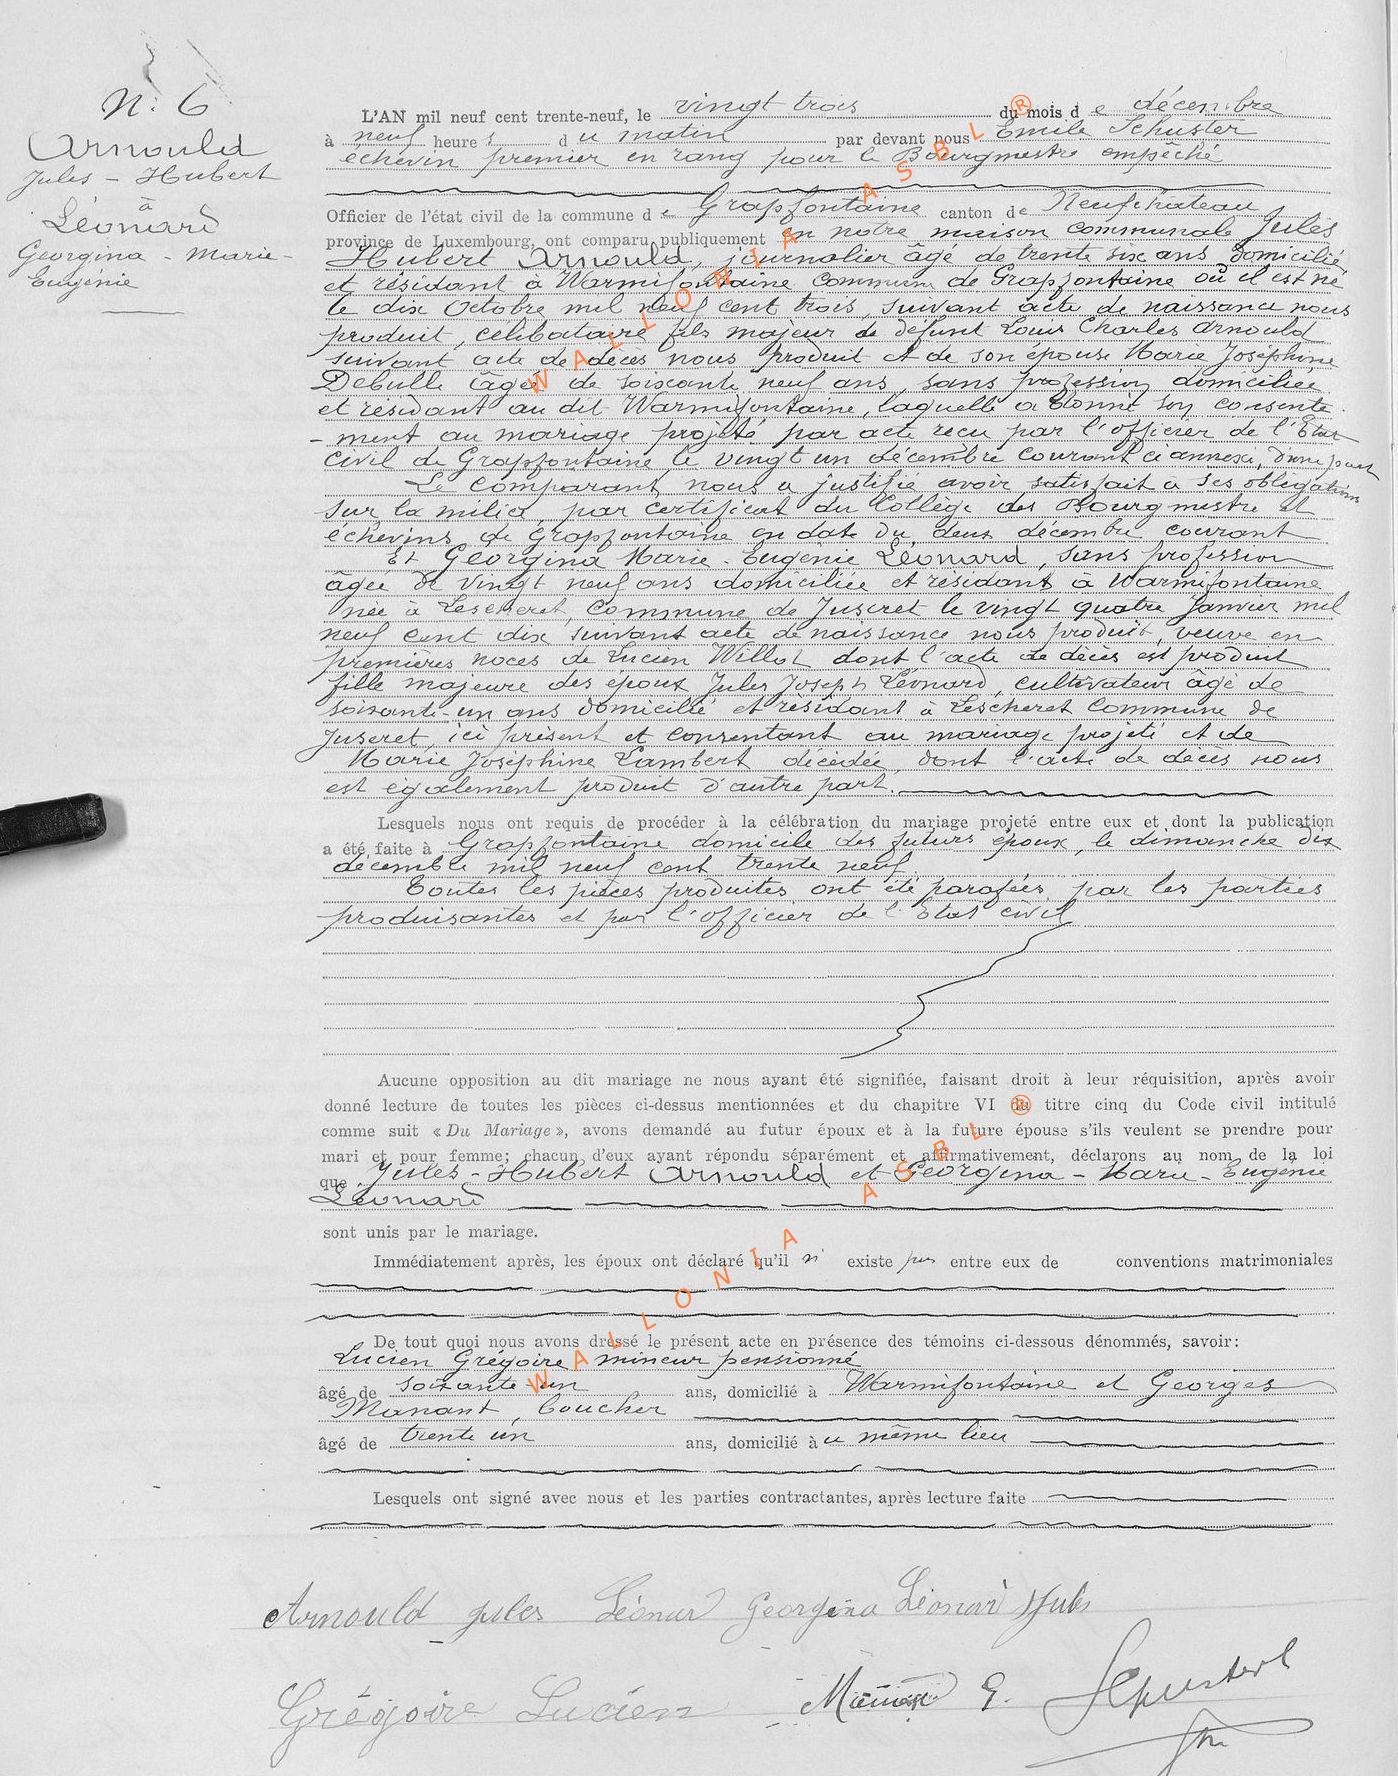 N. 6
Arnould
Jules - Hubert
à
Léonard
Georgina - Marie -
Eugénie
L'AN mil neuf cent trente-neuf, le vingt trois du mois de décembre
à neuf heures du matin par devant nous Emile Schuster
échevin premier en rang pour le Bourgmestre empêché
Officier de l'état civil de la commune de Grapfontaine canton de Neufchâteau
province de Luxembourg, ont comparu publiquement en notre maison communale Jules
Hubert Arnould, journalier âgé de trente six ans domicilié
et résidant à Warmifontaine commune de Grapfontaine où il est né
le dix Octobre mil neuf cent trois, suivant acte de naissance nous
produit, célibataire fils majeur de défunt Louis Charles Arnould
suivant acte de décès nous produit et de son épouse Marie Joséphine
Debulle âgée de soixante neuf ans, sans profession domiciliée
et résidant au dit Warmifontaine, laquelle a donné son consente-
-ment au mariage projeté par acte reçu par l'officier de l'Etat
civil de Grapfontaine le vingt un décembre courant ci annexé, d'une part
Le comparant nous a justifié avoir satisfait a ses obligations
sur la milice par certificat du Collège des Bourgmestre et
échevins de Grapfontaine en date du deux décembre courant
Et Georgina Marie - Eugénie Léonard, sans profession
âgée de vingt neuf ans domiciliée et résidant à Warmifontaine
née à Lescheret, commune de Juseret le vingt quatre Janvier mil
neuf cent dix suivant acte de naissance nous produit, veuve en
premières noces de Lucien Willot dont l'acte de décès est produit
fille majeure des époux Jules Joseph Léonard, cultivateur âgé de
soixante-un ans domicilié et résidant à Lescheret Commune de
Juseret, ici présent et consentant au mariage projeté et de
Marie Joséphine Lambert décédée, dont l'acte de décès nous
est également produit d'autre part.
Lesquels nous ont requis de procéder à la célébration du mariage projeté entre eux et dont la publication
a été faite à Grapfontaine domicile des futurs époux, le dimanche dix
décembre mil neuf cent trente neuf
Toutes les pièces produites ont été parafées par les parties
produisantes et par l'officier de l'Etat civil
Aucune opposition au dit mariage ne nous ayant été signifiée, faisant droit à leur réquisition, après avoir
donné lecture de toutes les pièces ci-dessus mentionnées et du chapitre VI du titre cinq du Code civil intitulé
comme suit « Du Mariage », avons demandé au futur époux et à la future épouse s'ils veulent se prendre pour
mari et pour femme; chacun d'eux ayant répondu séparément et affirmativement, déclarons au nom de la loi
que Jules - Hubert Arnould et Georgina - Marie - Eugénie
Léonard
sont unis par le mariage.
Immédiatement après, les époux ont déclaré qu'il n'existe pas entre eux de conventions matrimoniales
De tout quoi nous avons dressé le présent acte en présence des témoins ci-dessous dénommés, savoir:
Lucien Grégoire mineur pensionné
âgé de soixante-un ans, domicilié à Warmifontaine et Georges
Manant, boucher
âgé de trente un ans, domicilié à u même lieu
Lesquels ont signé avec nous et les parties contractantes, après lecture faite
Arnould Jules Léonard Georgina Léonard Jules
Grégoire Lucien Manant G.
WALLONIA ASBL ®
WALLONIA ASBL ®